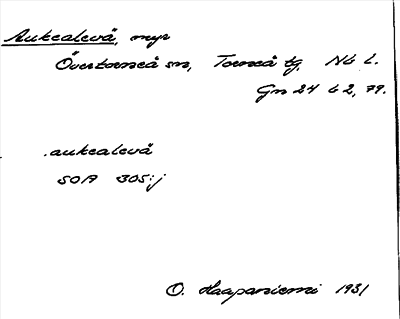 Aukealevä, myr
Övertorneå sn, Torneå tg. Nb l.
Gn 24 b 2, 79.
.aukealevä
SOA 305:j
O. Haapaniemi 1931